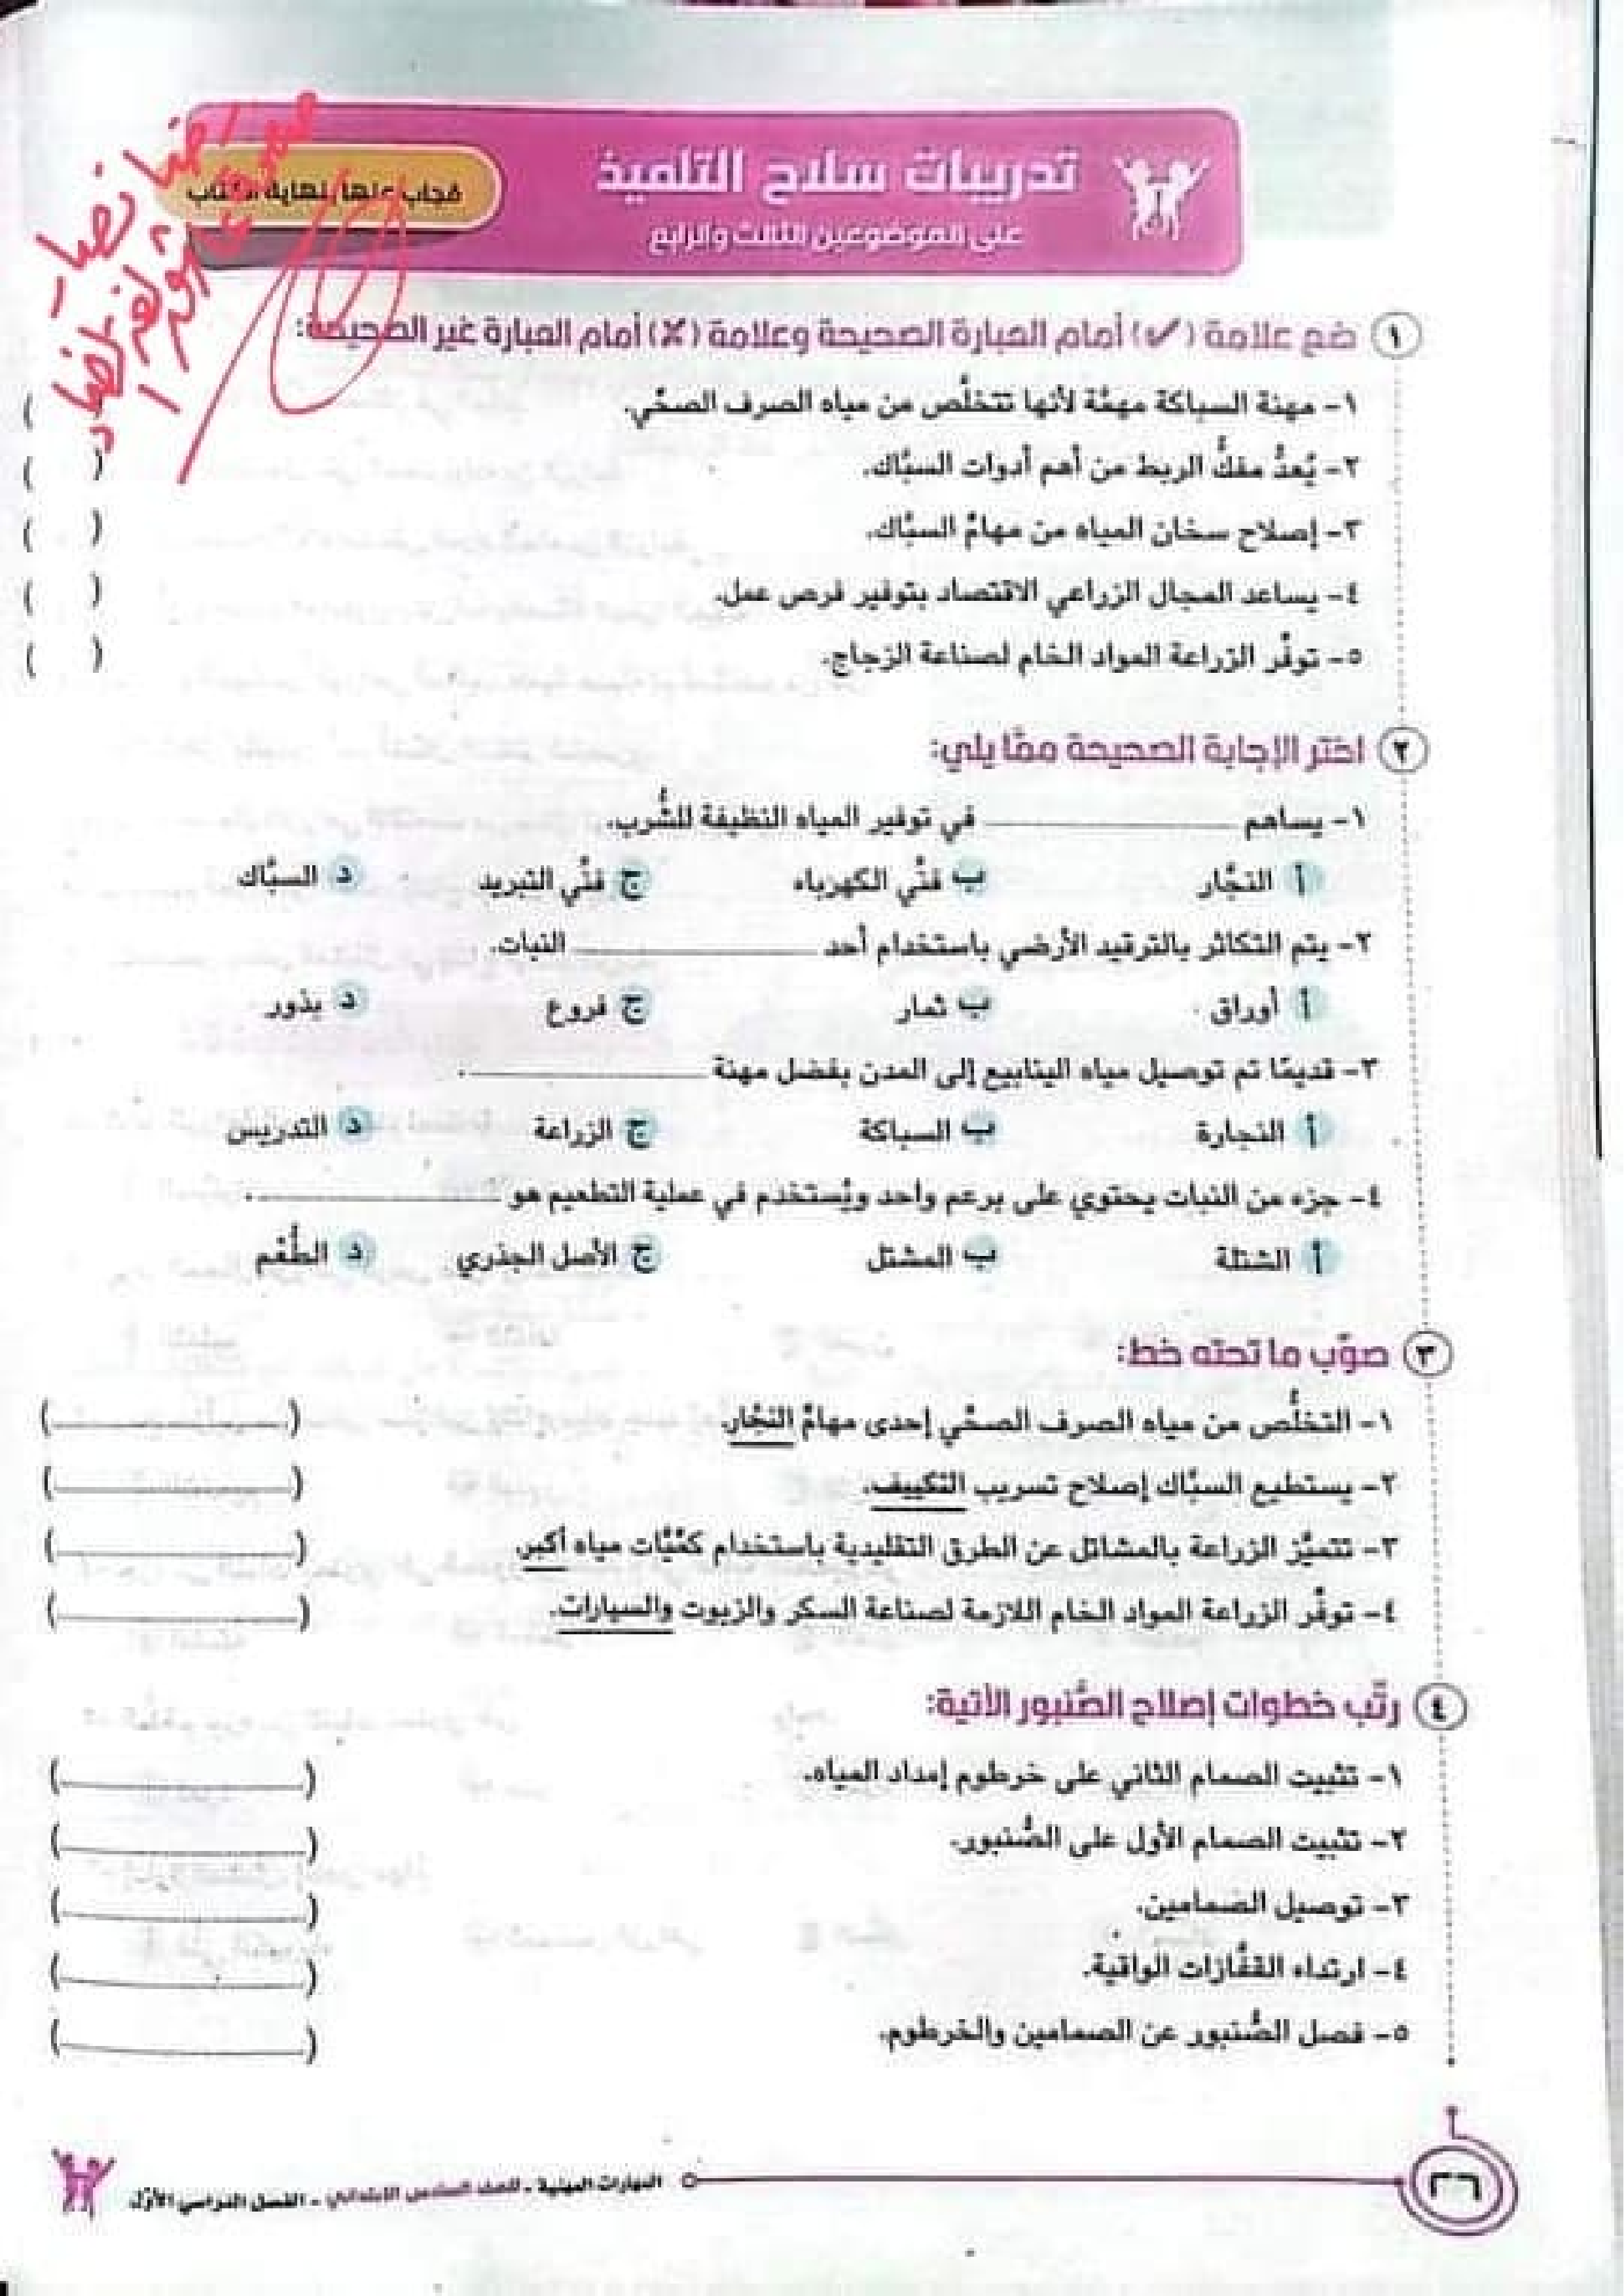 تدريبات سلاح التلميذ
على الموضوعين الثالث والرابع
مجاب عنها بنهاية الكتاب
١ ضع علامة (✓) أمام العبارة الصحيحة وعلامة (✗) أمام العبارة غير الصحيحة:
١- مهنة السباكة مهمَّة لأنها تتخلَّص من مياه الصرف الصحِّي. ( )
٢- يُعدُّ مفكُّ الربط من أهم أدوات السبَّاك. ( )
٣- إصلاح سخان المياه من مهامِّ السبَّاك. ( )
٤- يساعد المجال الزراعي الاقتصاد بتوفير فرص عمل. ( )
٥- توفِّر الزراعة المواد الخام لصناعة الزجاج. ( )
٢ اختر الإجابة الصحيحة ممَّا يلي:
١- يساهم ــــــــــ في توفير المياه النظيفة للشُّرب.
أ النجَّار ب فنِّي الكهرباء ج فنِّي التبريد د السبَّاك
٢- يتم التكاثر بالترقيد الأرضي باستخدام أحد ــــــــــ النبات.
أ أوراق ب ثمار ج فروع د بذور
٣- قديمًا تم توصيل مياه الينابيع إلى المدن بفضل مهنة ــــــــــ .
أ النجارة ب السباكة ج الزراعة د التدريس
٤- جزء من النبات يحتوي على برعم واحد ويُستخدم في عملية التطعيم هو ــــــــــ .
أ الشتلة ب المشتل ج الأصل الجذري د الطُّعْم
٣ صوِّب ما تحته خط:
١- التخلُّص من مياه الصرف الصحِّي إحدى مهامِّ النجَّار. (ــــــــــ)
٢- يستطيع السبَّاك إصلاح تسريب التكييف. (ــــــــــ)
٣- تتميَّز الزراعة بالمشاتل عن الطرق التقليدية باستخدام كمِّيَّات مياه أكبر. (ــــــــــ)
٤- توفِّر الزراعة المواد الخام اللازمة لصناعة السكر والزيوت والسيارات. (ــــــــــ)
٤ رتِّب خطوات إصلاح الصُّنبور الآتية:
١- تثبيت الصمام الثاني على خرطوم إمداد المياه. (ــــــــــ)
٢- تثبيت الصمام الأول على الصُّنبور. (ــــــــــ)
٣- توصيل الصمامين. (ــــــــــ)
٤- ارتداء القفَّازات الواقية. (ــــــــــ)
٥- فصل الصُّنبور عن الصمامين والخرطوم. (ــــــــــ)
٢٦ المهارات المهنية - للصف السادس الابتدائي - الفصل الدراسي الأوَّل